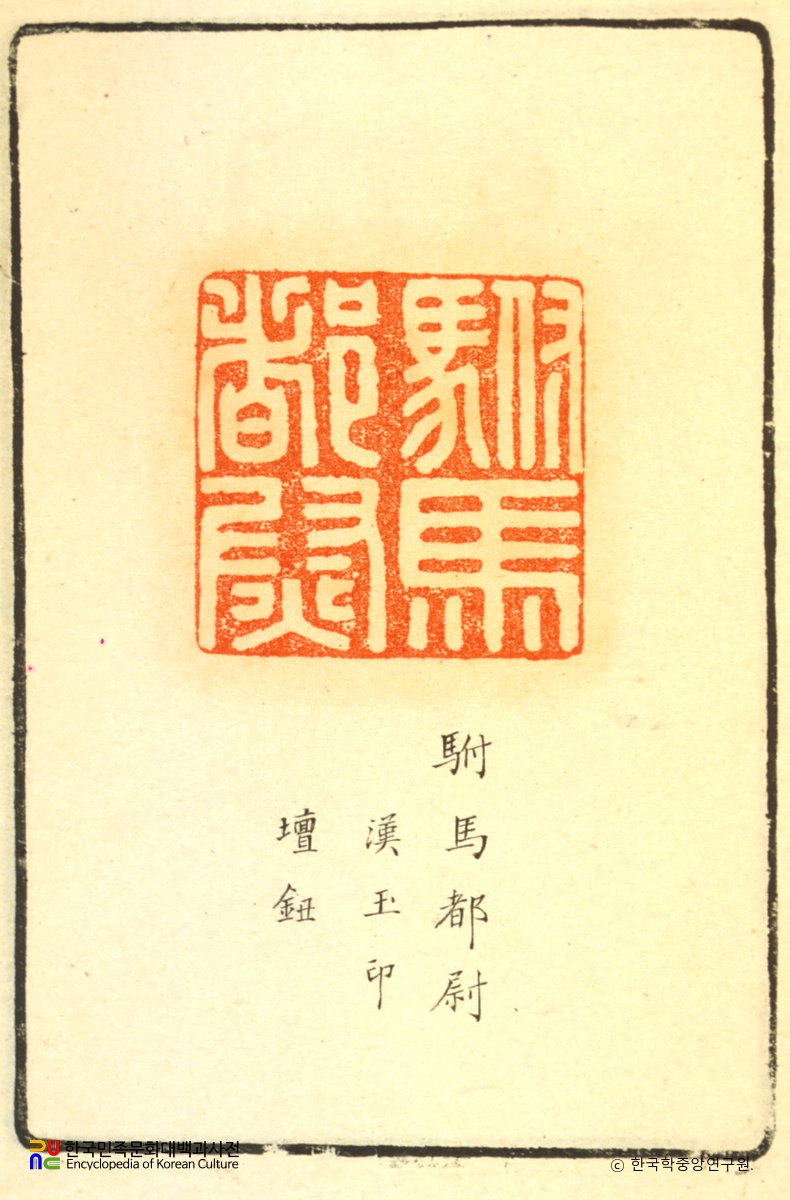 駙馬
都尉
駙馬都尉
漢玉印
壇鈕
한국민족문화대백과사전
Encyclopedia of Korean Culture
ⓒ 한국학중앙연구원.